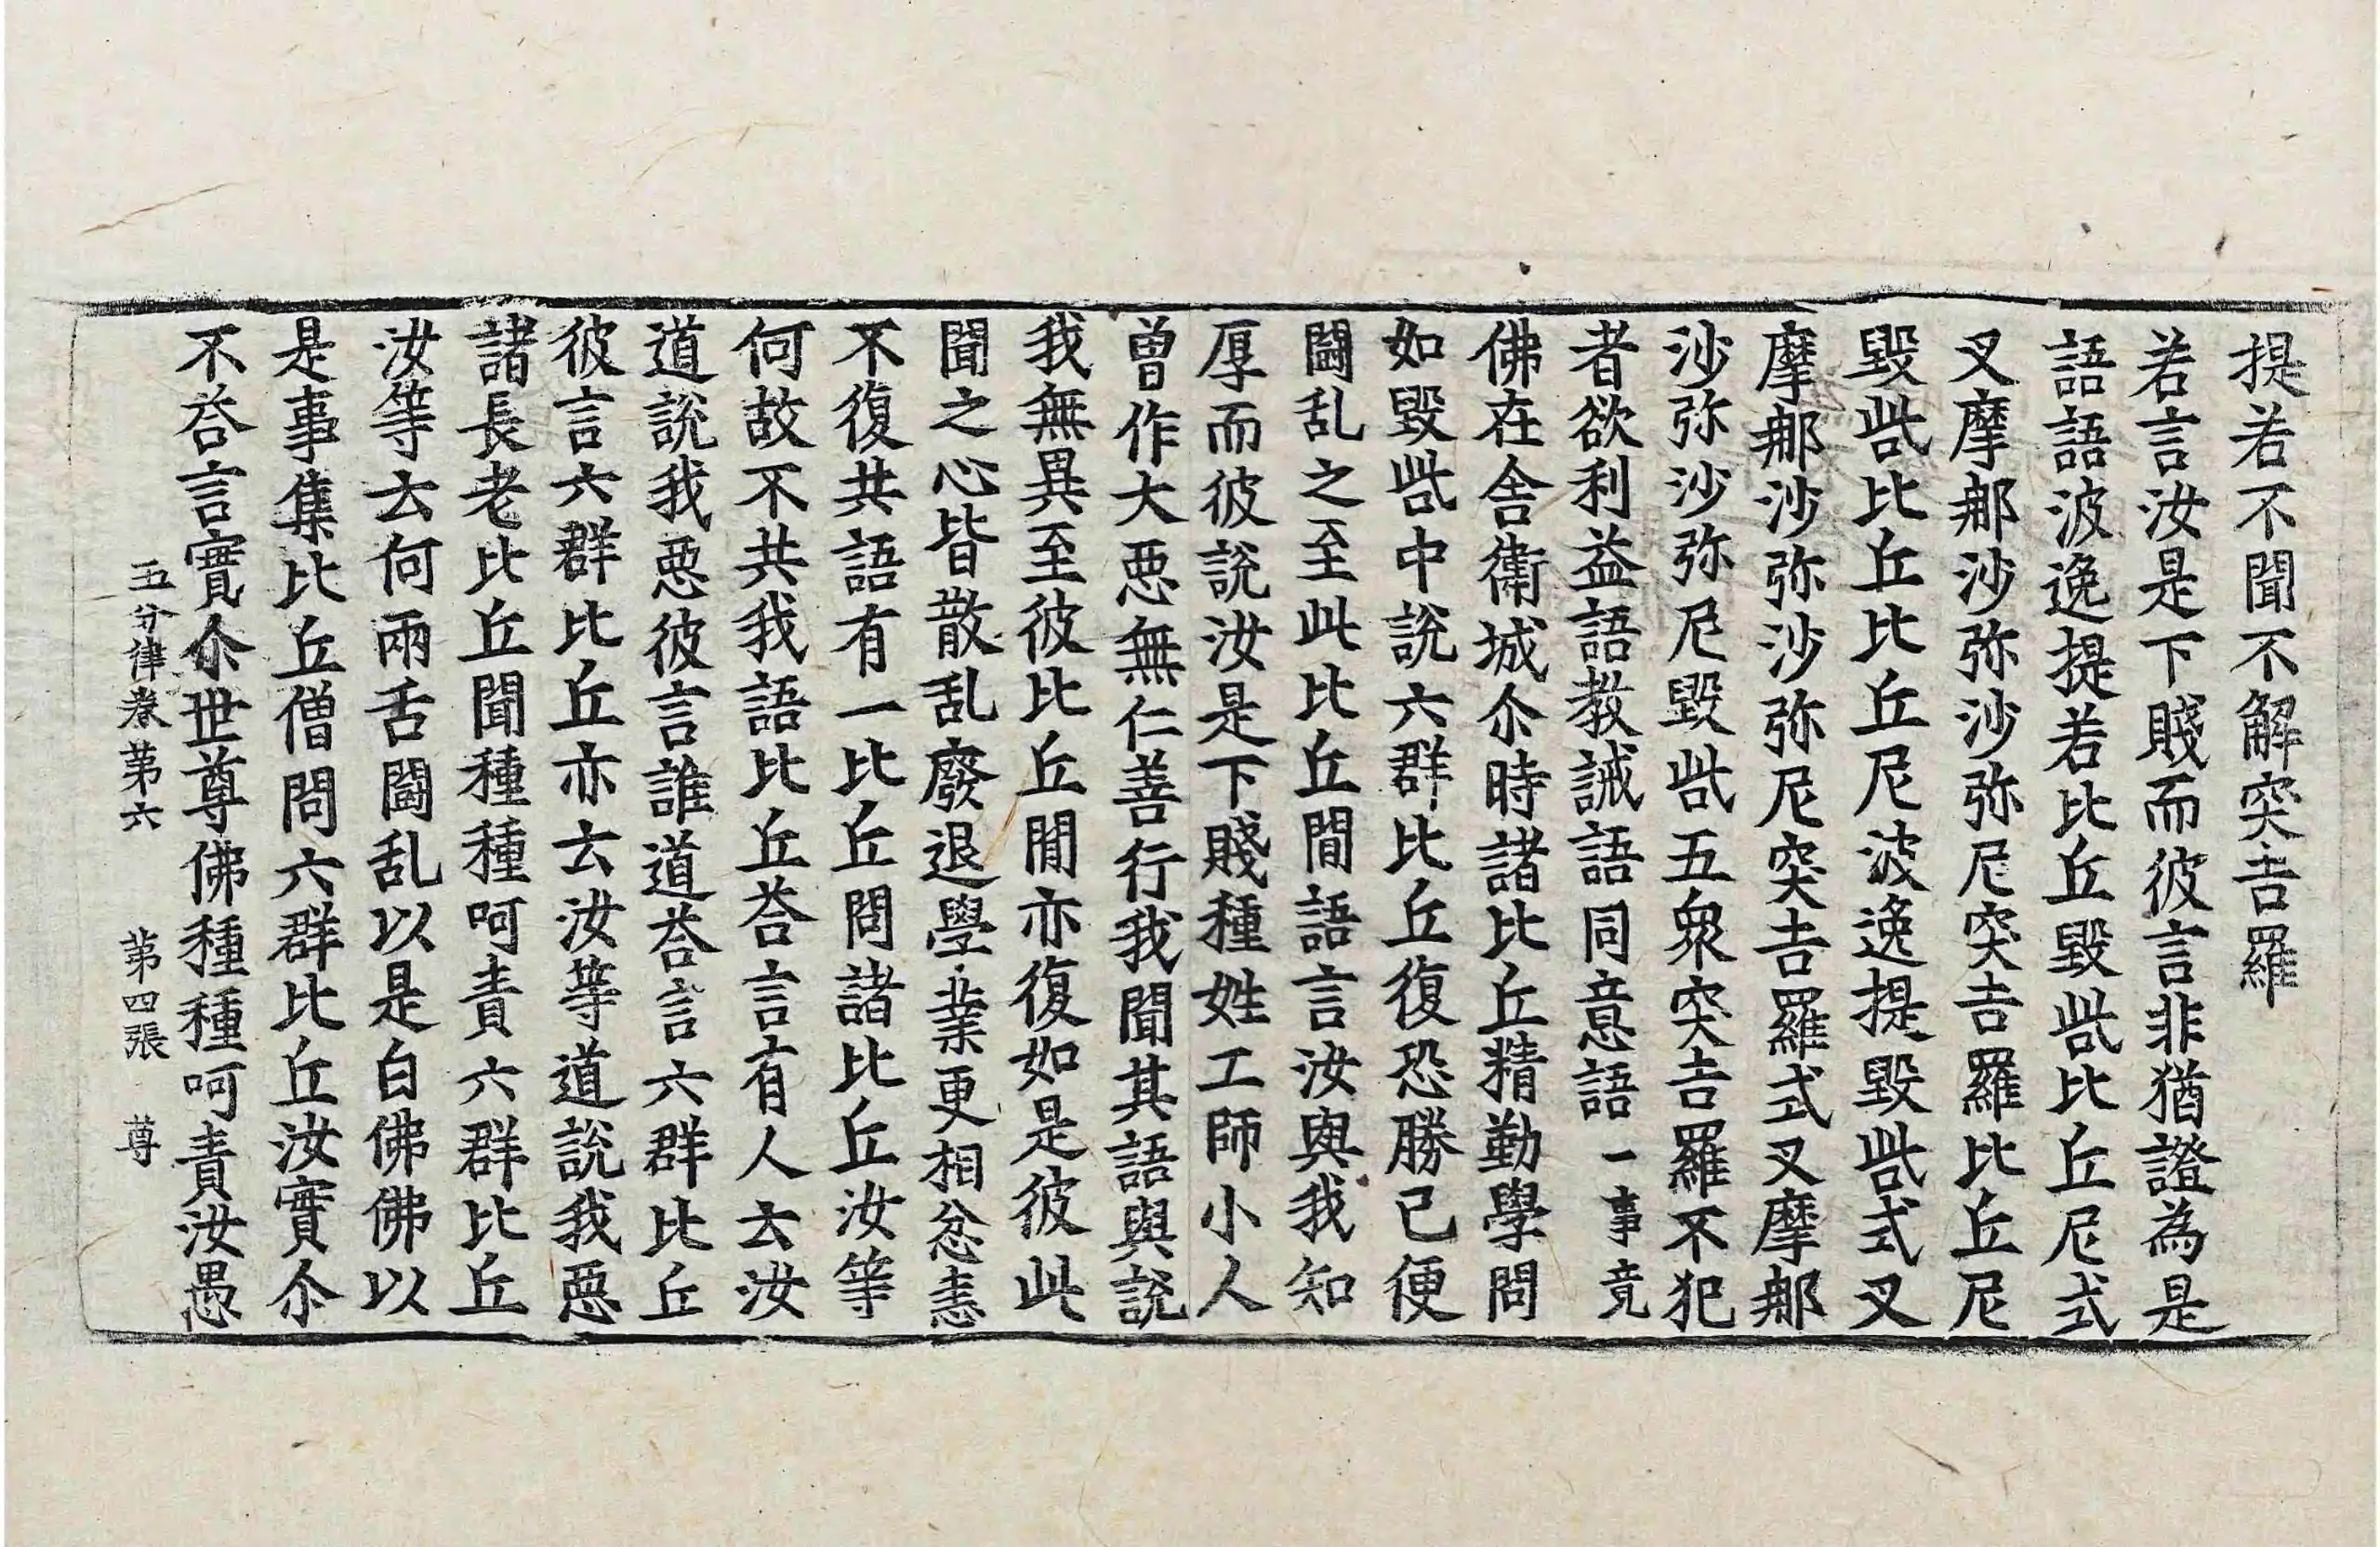 提若不聞不解突吉羅
若言汝是下賤而彼言非猶證為是
語語波逸提若比丘毀呰比丘尼式
叉摩那沙弥沙弥尼突吉羅比丘尼
毀呰比丘比丘尼波逸提毀呰式叉
摩那沙弥沙弥尼突吉羅式叉摩那
沙弥沙弥尼毀呰五衆突吉羅不犯
者欲利益語教誡語同意語一事竟
佛在舍衛城尒時諸比丘精勤學問
如毀呰中說六群比丘復恐勝己便
鬪乱之至此比丘間語言汝與我知
厚而彼說汝是下賤種姓工師小人
曽作大惡無仁善行我聞其語與說
我無異至彼比丘間亦復如是彼此
聞之心皆散乱廢退學業更相忿恚
不復共語有一比丘問諸比丘汝等
何故不共我語比丘荅言有人云汝
道說我惡彼言誰道荅言六群比丘
彼言六群比丘亦云汝等道說我惡
諸長老比丘聞種種呵責六群比丘
汝等云何兩舌鬪乱以是白佛佛以
是事集比丘僧問六群比丘汝實尒
不荅言實尒世尊佛種種呵責汝愚
五分律卷第六　第四張　尊